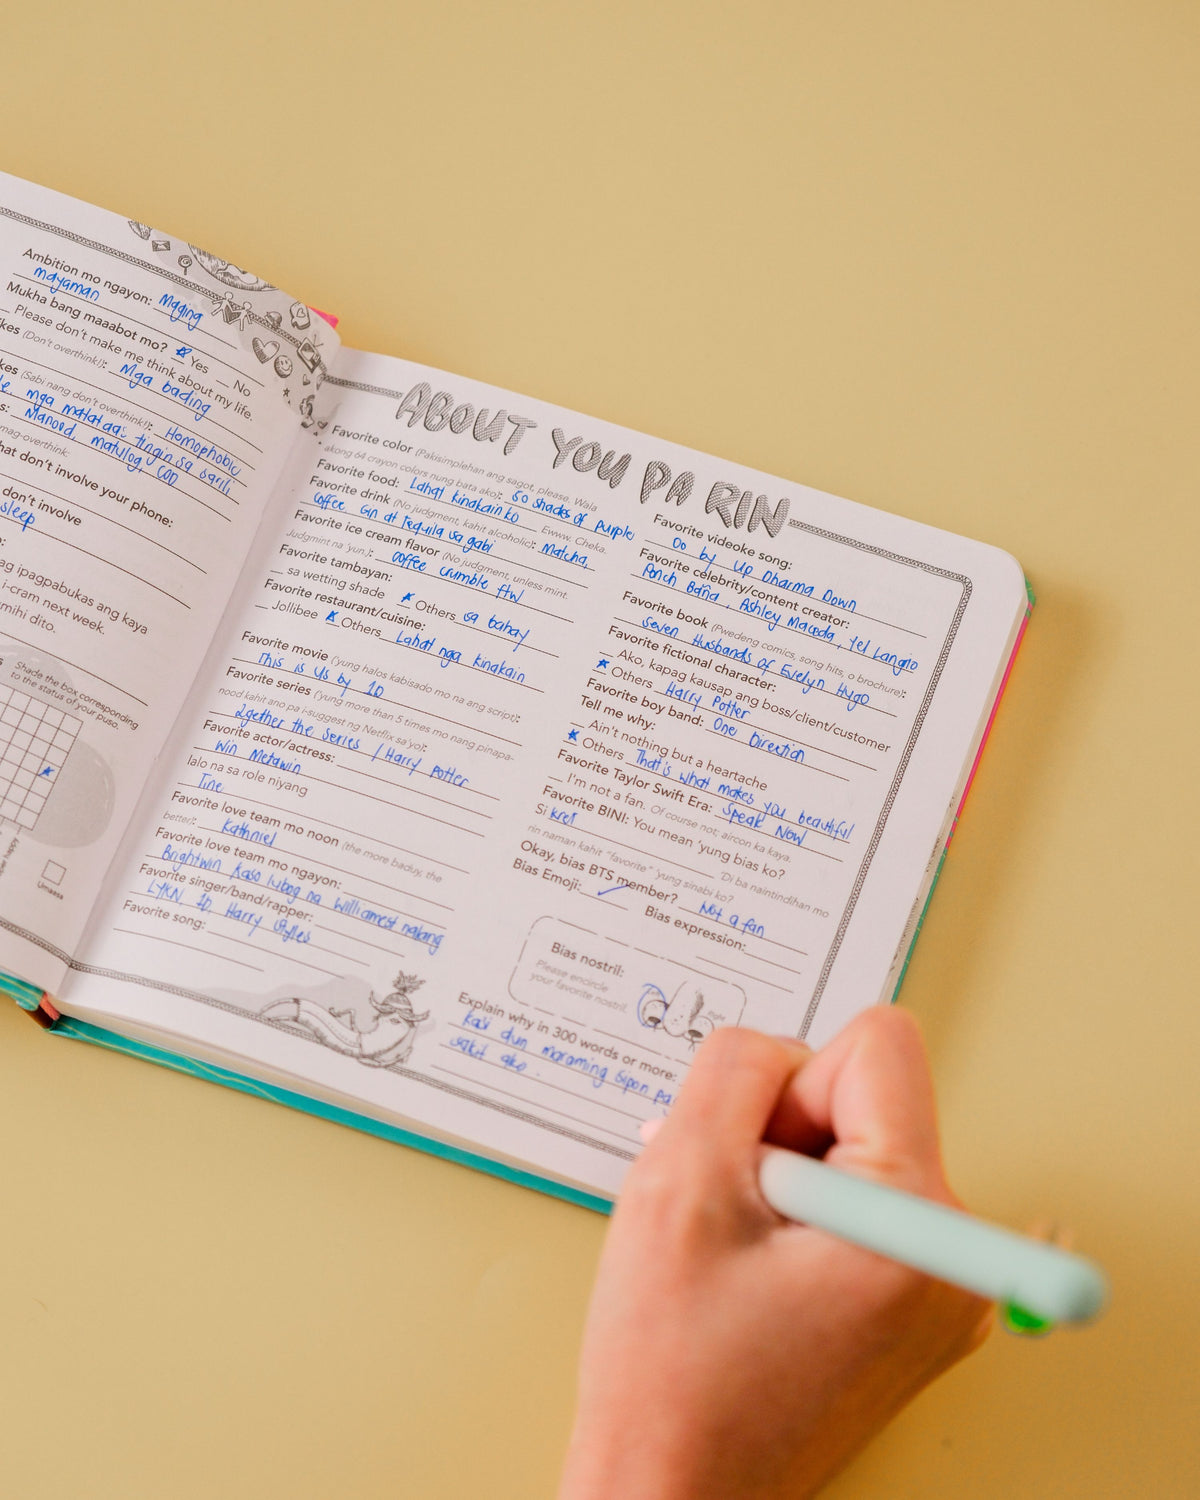 Ambition mo ngayon: Maging
mayaman
Mukha bang maaabot mo? Yes __ No
__ Please don't make me think about my life.
kes (Don't overthink!): Mga bading
kes (Sabi nang don't overthink!): Homophobic
mga matataas tingin sa sarili
s: Manood, matulog, COD
mag-overthink:
hat don't involve your phone:
don't involve
sleep
ag ipagpabukas ang kaya
i-cram next week.
mihi dito.
Shade the box corresponding
to the status of your puso.
Umaasa
ABOUT YOU PA RIN
Favorite color (Pakisimplehan ang sagot, please. Wala
akong 64 crayon colors nung bata ako): 50 shades of purple
Favorite food: Lahat kinakain ko __ Ewww. Cheka.
Favorite drink (No judgment, kahit alcoholic): Matcha,
coffee Gin at Tequila sa gabi
Favorite ice cream flavor (No judgment, unless mint.
Judgmint na 'yun.): coffee crumble ftw
Favorite tambayan:
__ sa wetting shade Others sa bahay
Favorite restaurant/cuisine:
__ Jollibee Others Lahat nga kinakain
Favorite movie ('yung halos kabisado mo na ang script):
This is Us by 1D
Favorite series ('yung more than 5 times mo nang pinapa-
nood kahit ano pa i-suggest ng Netflix sa'yo):
2gether the series / Harry Potter
Favorite actor/actress:
Win Metawin
lalo na sa role niyang
Tine
Favorite love team mo noon (the more baduy, the
better): Kathniel
Favorite love team mo ngayon:
Brightwin kaso lubog na williamest nalang
Favorite singer/band/rapper:
LYKN 1D, Harry Styles
Favorite song:
Favorite videoke song:
Oo by Up Dharma Down
Favorite celebrity/content creator:
Ponch Baña, Ashley Maceda, Yel Langio
Favorite book (Pwedeng comics, song hits, o brochure):
Seven Husbands of Evelyn Hugo
Favorite fictional character:
__ Ako, kapag kausap ang boss/client/customer
Others Harry Potter
Favorite boy band: One Direction
Tell me why:
__ Ain't nothing but a heartache
Others That's what makes you beautiful
Favorite Taylor Swift Era: Speak Now
__ I'm not a fan. Of course not; aircon ka kaya.
Favorite BINI: You mean 'yung bias ko?
Si kret 'Di ba naintindihan mo
rin naman kahit "favorite" 'yung sinabi ko?
Okay, bias BTS member? Not a fan
Bias Emoji:
Bias expression:
Bias nostril:
Please encircle
your favorite nostril.
right
Explain why in 300 words or more:
kasi dun maraming sipon pag
sakit ako.